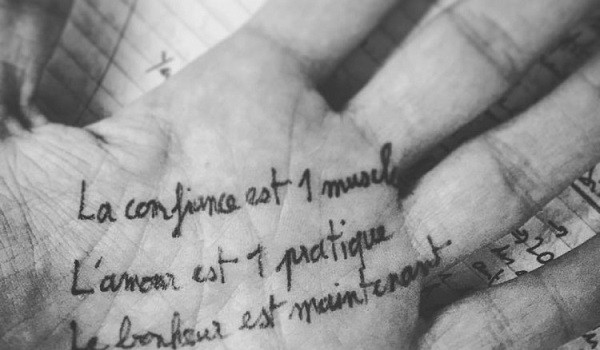 La confiance est 1 muscle
L'amour est 1 pratique
Le bonheur est maintenant
20